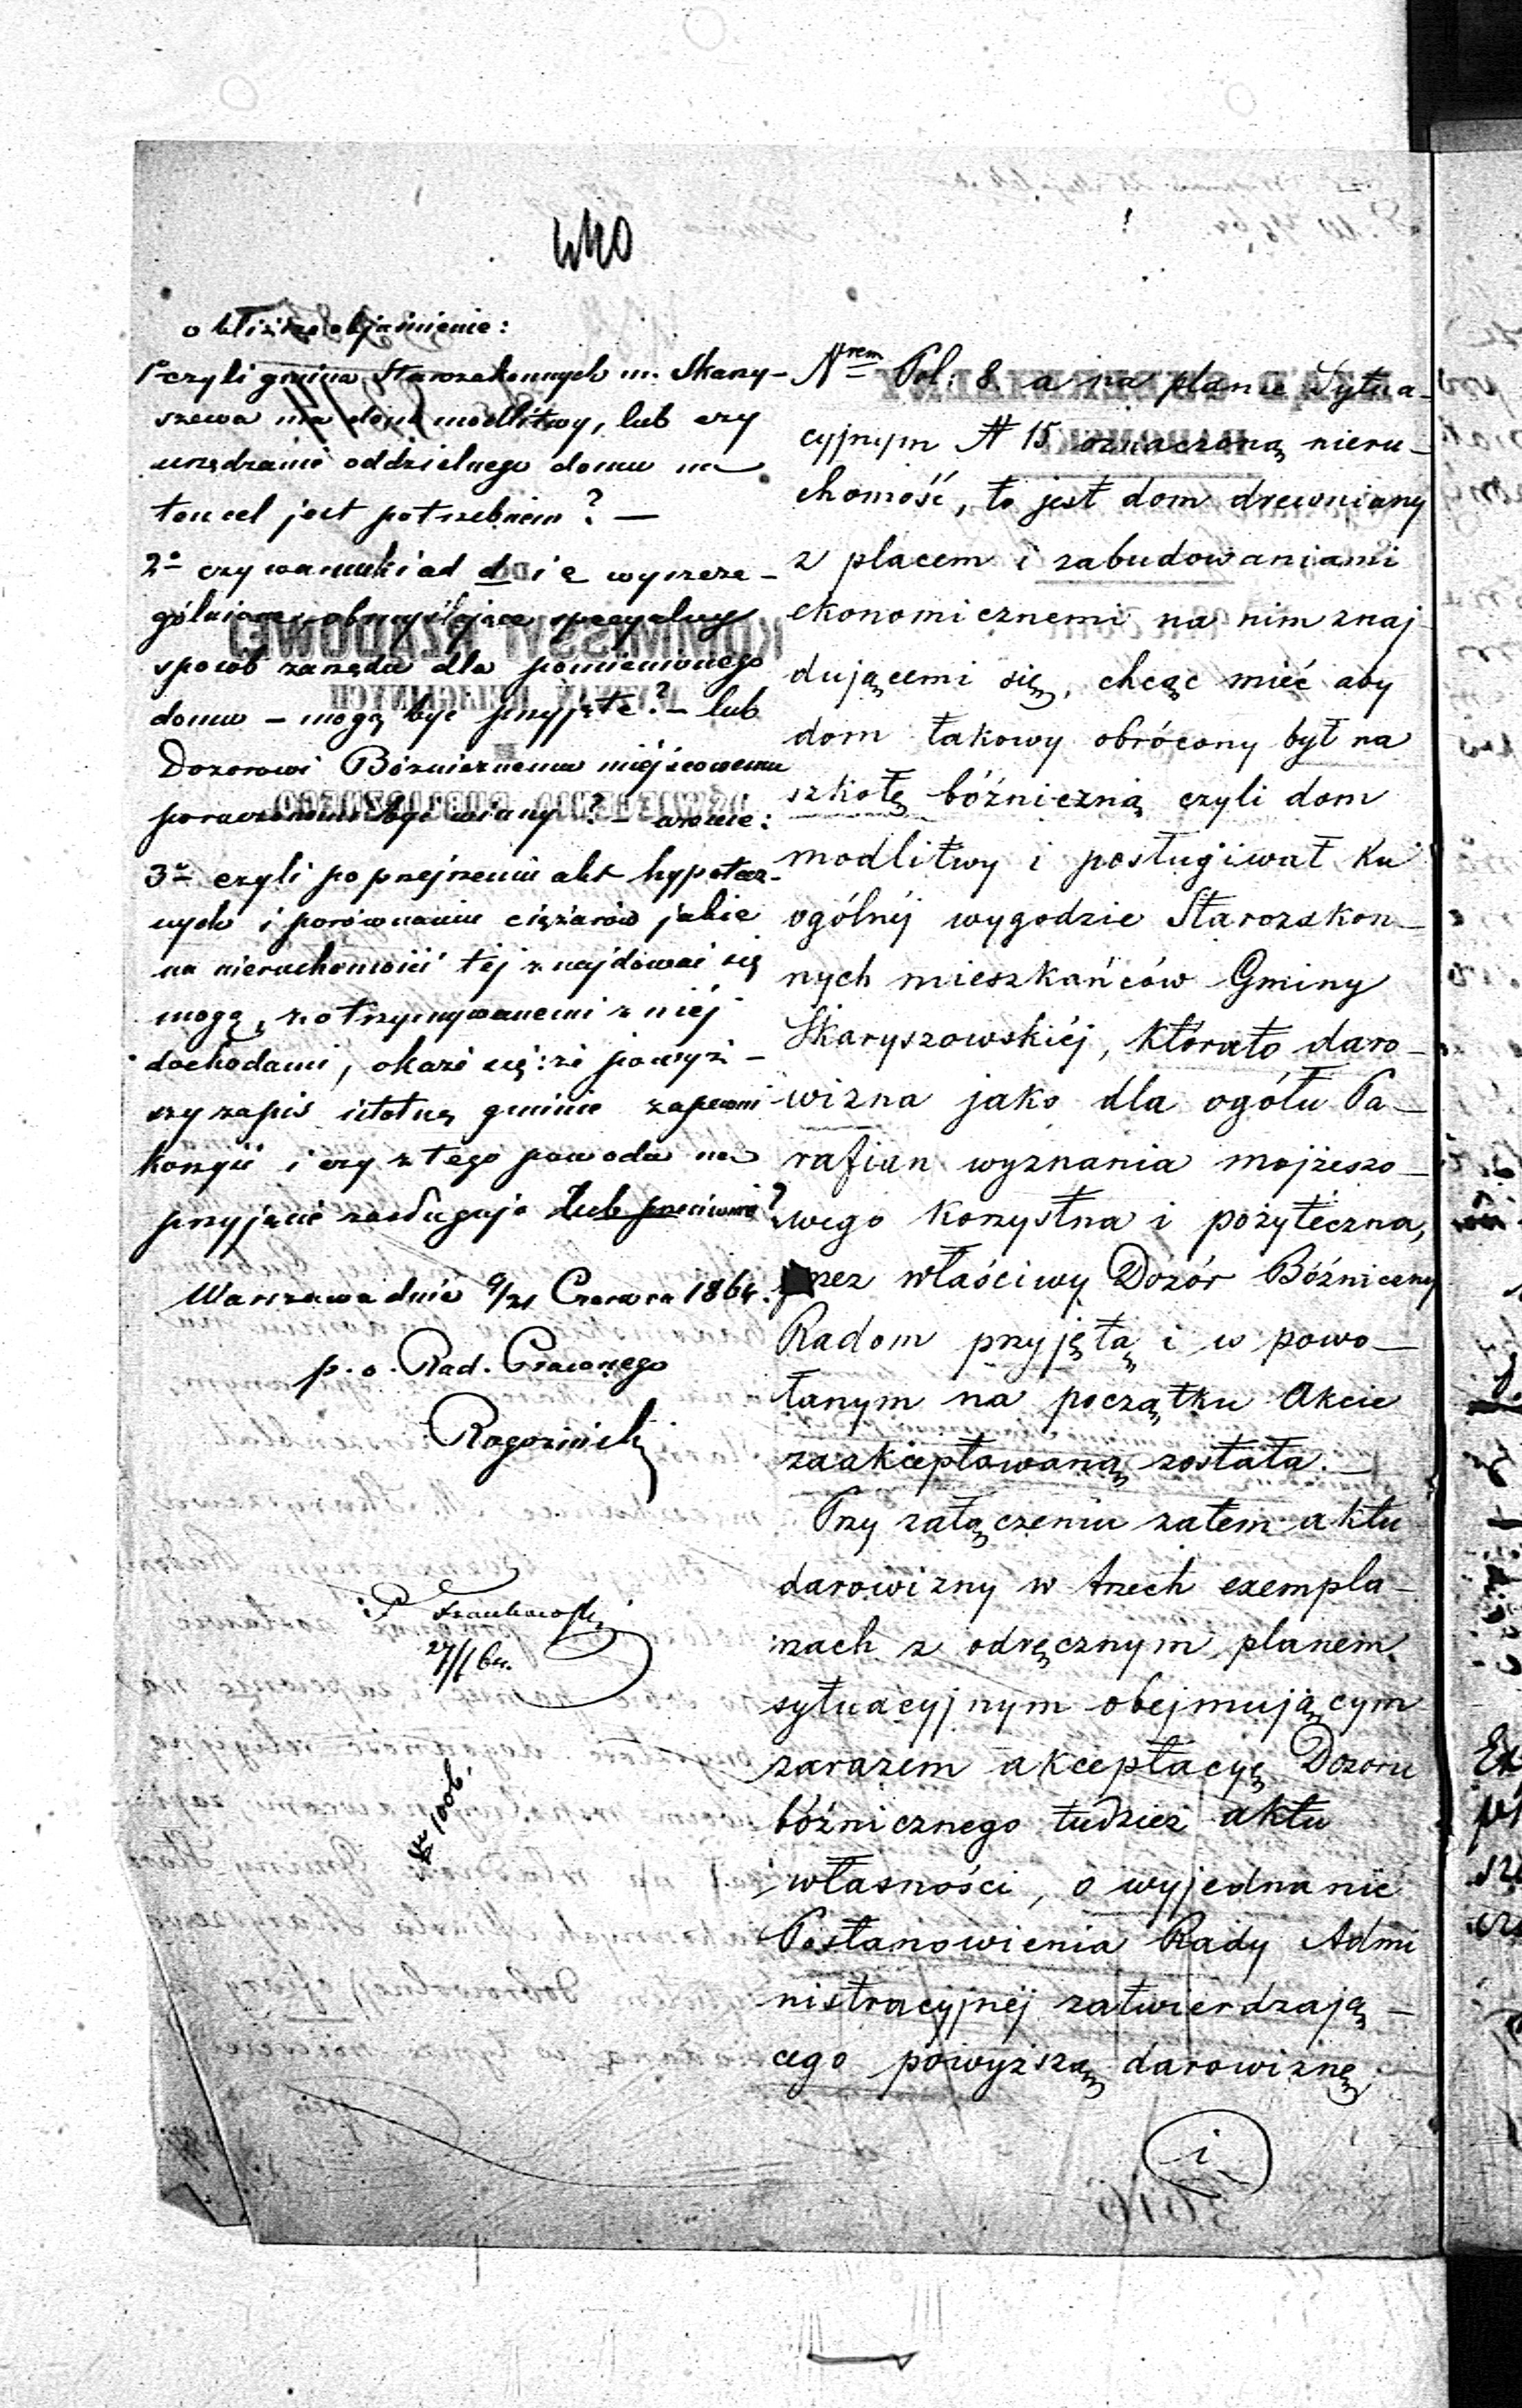 440
o bliższe objaśnienie:
1º czyli gmina Starozakonnych m. Skary-
szewa ma dom modlitwy, lub czy
urządzenie oddzielnego domu na
ten cel jest potrzebnem? —
2º czy warunki wyszcze-
gólniające obmyślające specyalny
sposób zarządu dla pomienionego
domu – mogą być przyjęte? – lub
Dozorowi Bóźnicznemu miejscowemu
być winny? –
3º czyli po przejrzeniu akt hypotecz-
nych i porównaniu ciężarów jakie
na nieruchomości tej znajdować się
mogą, z otrzymywanemi z niéj
dochodami, okaże się: że powyż-
szy zapis istotną gminie zapewni
korzyść i czy z tego powodu na
przyjęcie zasługuje lub przeciwnie?
Warszawa dnia 9/21 Czerwca 1864.
p. o. Rad. Prawnego
Rogoziński
27/ 64.
Nrem Pol: 8 a na planie Sytua-
cyjnym N 15 oznaczoną nieru-
chomość, to jest dom drewniany
z placem i zabudowaniami
ekonomicznemi na nim znaj
dującemi się, chcąc mieć aby
dom takowy obrócony był na
szkołę bóźniczną czyli dom
modlitwy i posługiwał ku
ogólnéj wygodzie Starozakon-
nych mieszkańców Gminy
Skaryszowskiéj, którato daro-
wizna jako dla ogółu Pa-
rafian wyznania mojżeszo-
wego korzystna i pożyteczna,
przez właściwy Dozór Bóźniczny
Radom przyjętą i w powo-
łanym na początku Akcie
zaakceptowaną została. —
Przy załączeniu zatem aktu
darowizny w trzech exempla-
rzach z odręcznym planem
sytuacyjnym obejmującym
zarazem akceptacyę Dozoru
bóźnicznego tudzież aktu
własności, o wyjednanie
Postanowienia Rady Admi
nistracyjnéj zatwierdzają-
cego powyższą darowiznę
i